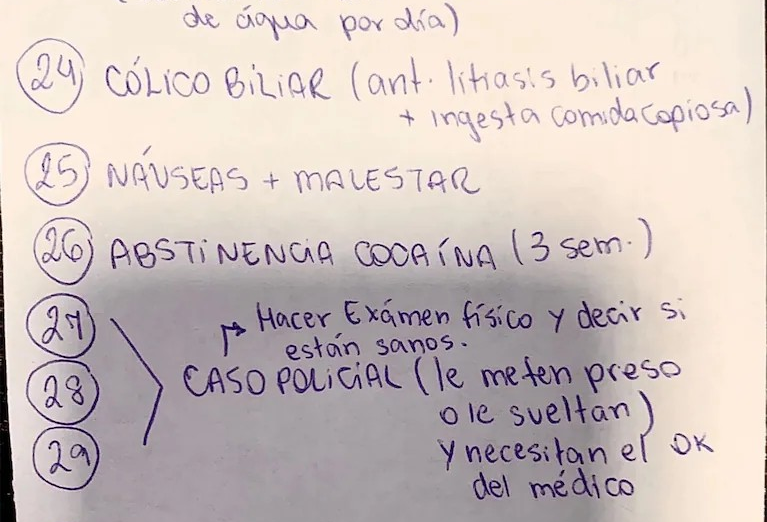 de água por día)
24 CÓLICO BILIAR (ant. litiasis biliar
+ ingesta comida copiosa)
25 NÁUSEAS + MALESTAR
26 ABSTINENCIA COCAÍNA (3 sem.)
27 → Hacer Exámen físico y decir si
están sanos.
28 CASO POLICIAL (le meten preso
o le sueltan)
29 y necesitan el OK
del médico